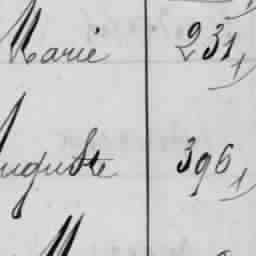 Marie 231
Auguste 396